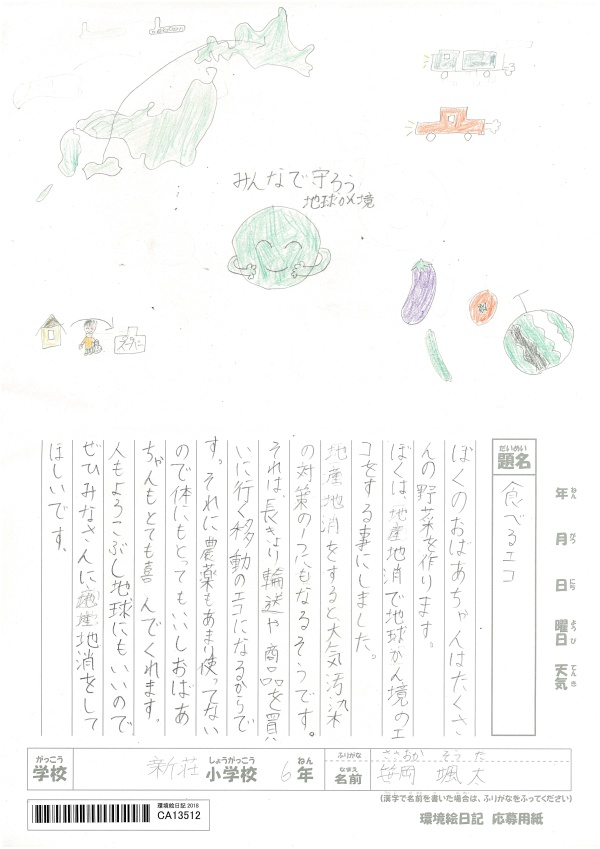 みんなで守ろう
地球の環境
スーパー
だいめい
題名
食べるエコ
年 ねん
月 がつ
日 にち
曜日 ようび
天気 てんき
ぼくのおばあちゃんはたくさ
んの野菜を作ります。
ぼくは、地産地消で地球かん境のエ
コをする事にしました。
地産地消をすると大気汚染
の対策の1つにもなるそうです。
それは、長きょり輸送や商品を買
いに行く移動のエコになるからで
す。それに農薬もあまり使ってない
ので体にもとってもいいしおばあ
ちゃんもとても喜んでくれます。
人もよろこぶし地球にもいいので、
ぜひみなさんに地産地消をして
ほしいです。
がっこう
学校
新荘
しょうがっこう
小学校
6
ねん
年
ふりがな
ささおか そうた
なまえ
名前
笹岡 颯太
(漢字で名前を書いた場合は、ふりがなをふってください)
環境絵日記2018
CA13512
環境絵日記 応募用紙